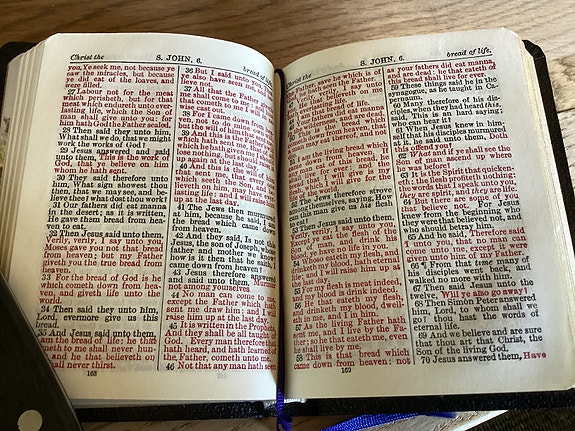 Christ the S. JOHN, 6. bread of
you, Ye seek me, not because ye
saw the miracles, but because
ye did eat of the loaves, and
were filled.
27 Labour not for the meat
which perisheth, but for that
meat which endureth unto ever-
lasting life, which the Son of
man shall give unto you: for
him hath God the Father sealed.
28 Then said they unto him,
What shall we do, that we might
work the works of God?
29 Jesus answered and said
unto them, This is the work of
God, that ye believe on him
whom he hath sent.
30 They said therefore unto
him, What sign shewest thou
then, that we may see, and be-
lieve thee? what dost thou work?
31 Our fathers did eat manna
in the desert; as it is written,
He gave them bread from hea-
ven to eat.
32 Then Jesus said unto them,
Verily, verily, I say unto you,
Moses gave you not that bread
from heaven; but my Father
giveth you the true bread from
heaven.
33 For the bread of God is he
which cometh down from hea-
ven, and giveth life unto the
world.
34 Then said they unto him,
Lord, evermore give us this
bread.
35 And Jesus said unto them,
I am the bread of life: he that
cometh to me shall never hun-
and he that believeth on
shall never thirst.
168
36 But I said unto you, That
ye also have seen me, and
not.
37 All that the Father giveth
me shall come to me; and him
that cometh to me I will in no
wise cast out.
38 For I came down from hea-
ven, not to do mine own will,
but the will of him that sent me.
39 And this is the Father's will
which hath sent me, that of all
which he hath given me I should
lose nothing, but should raise it
up again at the last day.
40 And this is the will of him
that sent me, that every one
which seeth the Son, and be-
lieveth on him, may have ever-
lasting life: and I will raise him
up at the last day.
41 The Jews then murmured
at him, because he said, I am
the bread which came down
from heaven.
42 And they said, Is not this
Jesus, the son of Joseph, whose
father and mother we know?
how is it then that he saith, I
came down from heaven?
43 Jesus therefore answered
and said unto them, Murmur
not among yourselves.
44 No man can come to me,
except the Father which hath
sent me draw him: and I will
raise him up at the last day.
45 It is written in the prophets,
And they shall be all taught of
God. Every man therefore that
hath heard, and hath learned of
the Father, cometh unto me.
46 Not that any man hath seen
Christ the S. JOHN, 6. bread of life.
the Father, save he which is of
God, he hath seen the Father.
verily, I say unto
you, He that believeth on me
hath everlasting life.
I am that bread of life.
Your fathers did eat manna
in the wilderness, and are dead.
This is the bread which
cometh down from heaven, that
a man may eat thereof, and not
die.
I am the living bread which
came down from heaven: if
any man eat of this bread, he
shall live for ever: and the
bread that I will give is my
flesh, which I will give for the
life of the world.
52 The Jews therefore strove
among themselves, saying, How
can this man give us his flesh
to eat?
53 Then Jesus said unto them,
Verily, verily, I say unto you,
Except ye eat the flesh of the
Son of man, and drink his
blood, ye have no life in you.
54 Whoso eateth my flesh, and
drinketh my blood, hath eternal
life; and I will raise him up at
the last day.
55 For my flesh is meat indeed,
and my blood is drink indeed.
56 He that eateth my flesh,
and drinketh my blood, dwell-
eth in me, and I in him.
57 As the living Father hath
sent me, and I live by the Fa-
ther: so he that eateth me, even
he shall live by me.
58 This is that bread which
came down from heaven: not
169
as your fathers did eat manna,
and are dead: he that eateth of
this bread shall live for ever.
59 These things said he in the
synagogue, as he taught in Ca-
pernaum.
60 Many therefore of his dis-
ciples, when they had heard this,
said, This is an hard saying;
who can hear it?
61 When Jesus knew in him-
self that his disciples murmured
at it, he said unto them, Doth
this offend you?
62 What and if ye shall see the
Son of man ascend up where
he was before?
63 It is the Spirit that quicken-
eth; the flesh profiteth nothing:
the words that I speak unto you,
they are spirit, and they are life.
64 But there are some of you
that believe not. For Jesus
knew from the beginning who
they were that believed not, and
who should betray him.
65 And he said, Therefore said
I unto you, that no man can
come unto me, except it were
given unto him of my Father.
66 ¶ From that time many of
his disciples went back, and
walked no more with him.
67 Then said Jesus unto the
twelve, Will ye also go away?
68 Then Simon Peter answered
him, Lord, to whom shall we
go? thou hast the words of
eternal life.
69 And we believe and are sure
that thou art that Christ, the
Son of the living God.
70 Jesus answered them, Have